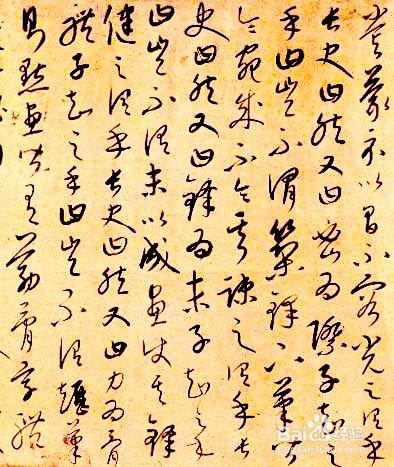 嘗蒙示以間不容光之謂乎
長史曰然又曰密為際子知
乎曰豈不謂築鋒下筆
令宛成不令其疎之謂乎長
史曰然又曰鋒為末子知之乎
曰豈不謂末以成畫使其鋒
健之謂乎長史曰然又曰力為骨
體子知之乎曰豈不謂趯筆
則點畫皆有筋骨字體
Baidu 经验